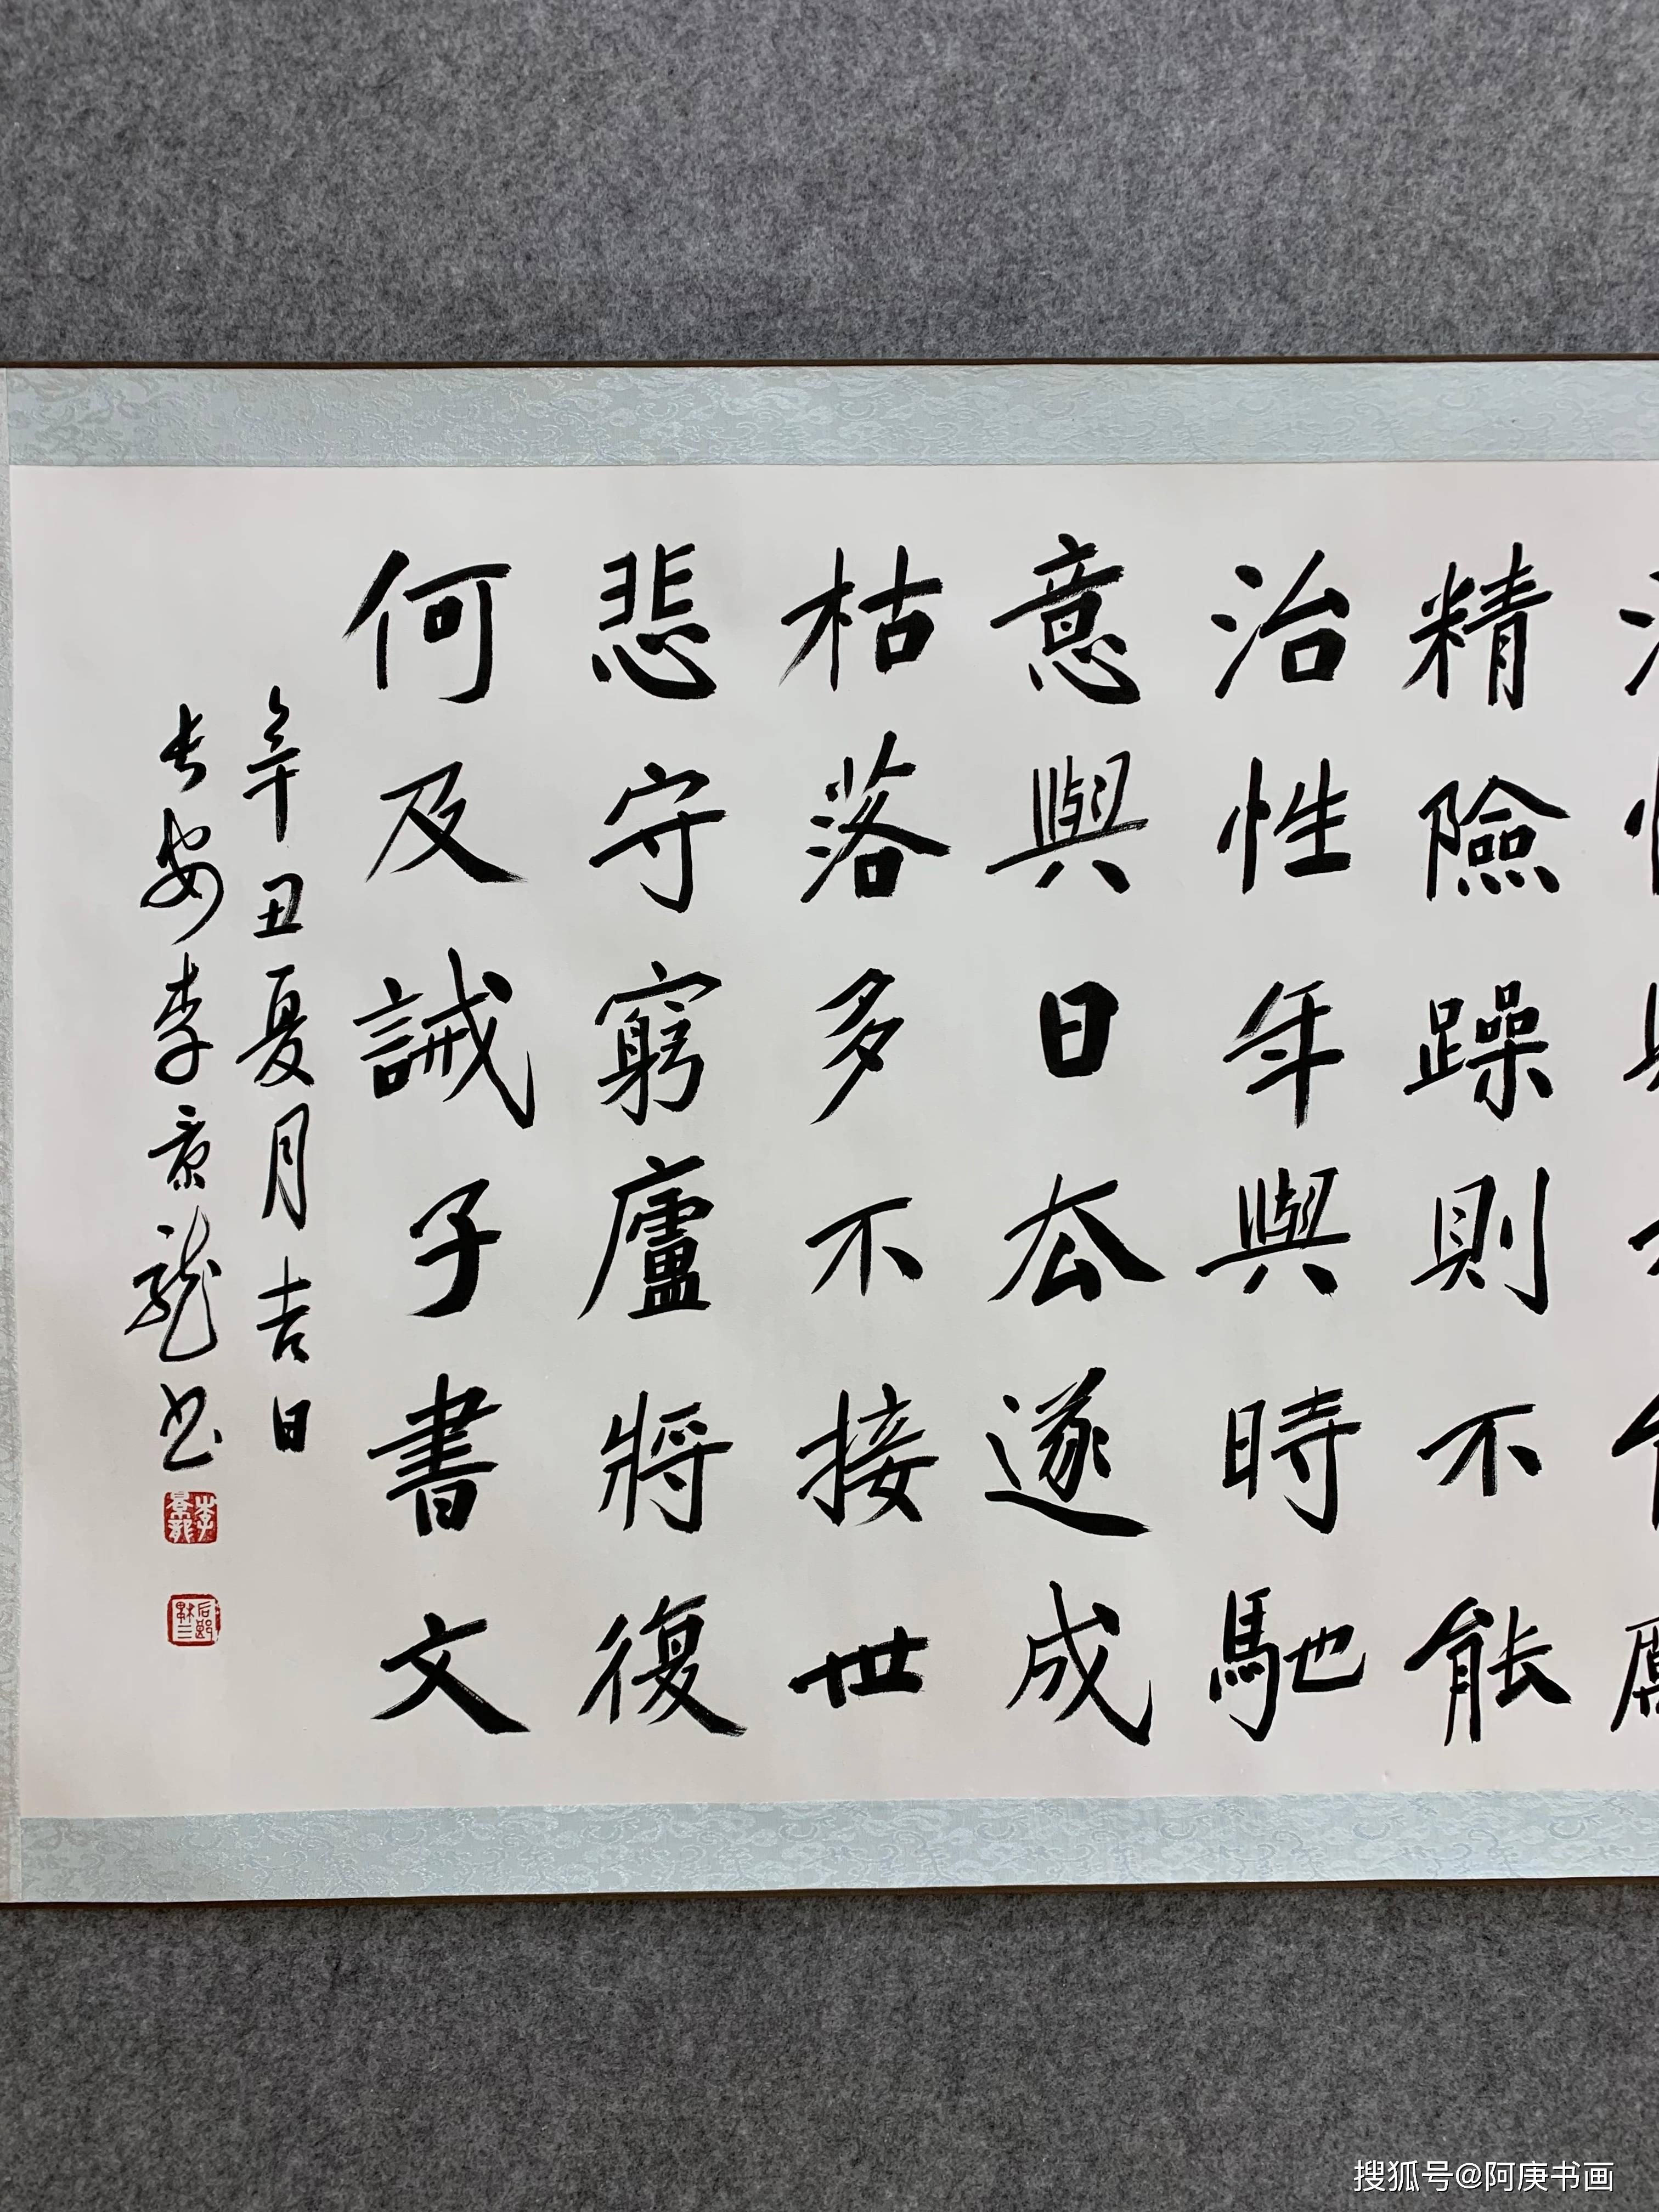 精險躁則不能
治性年與時馳
意與日去遂成
枯落多不接世
悲守窮廬將復
何及誡子書文
辛丑夏月吉日
长安李景龍书
李景龍
搜狐号@阿庚书画